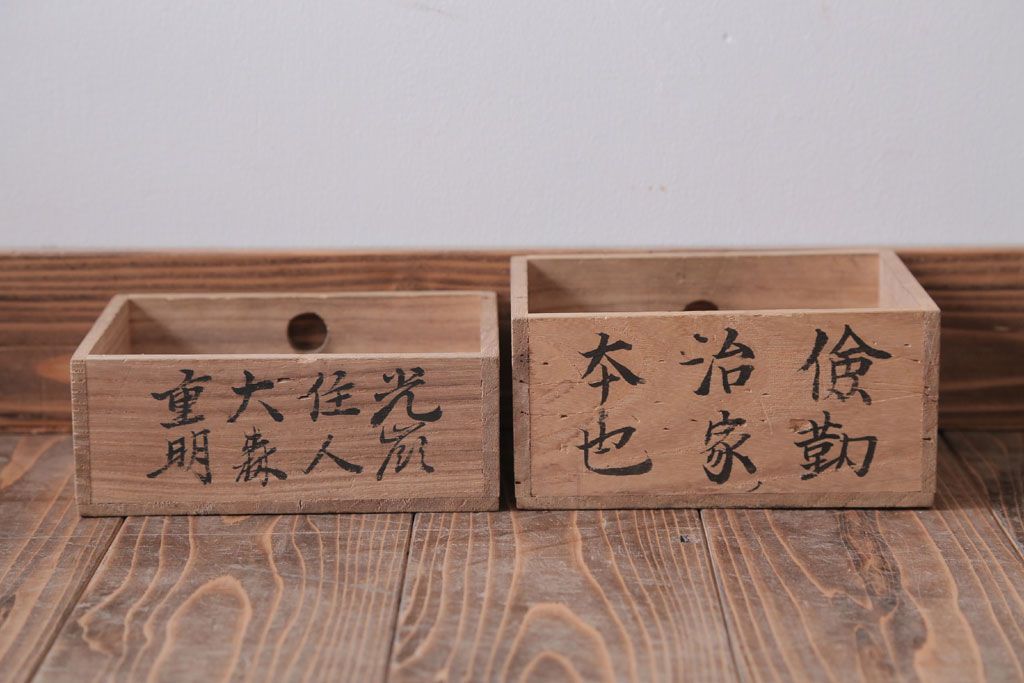 倹勤
治家
本也
光嶺
住人
大森
重明